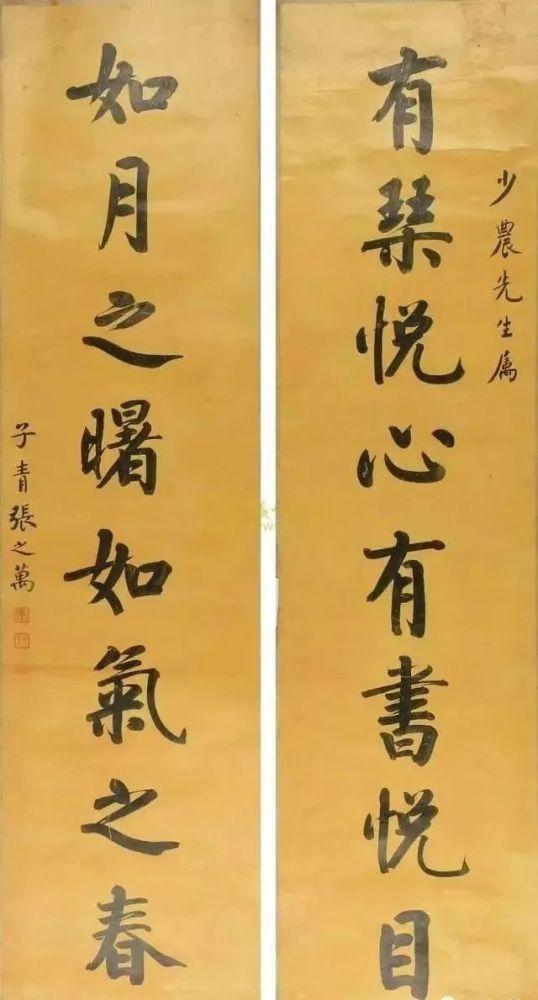 少農先生属
有琹悦心有書悦目
如月之曙如氣之春
子青張之萬